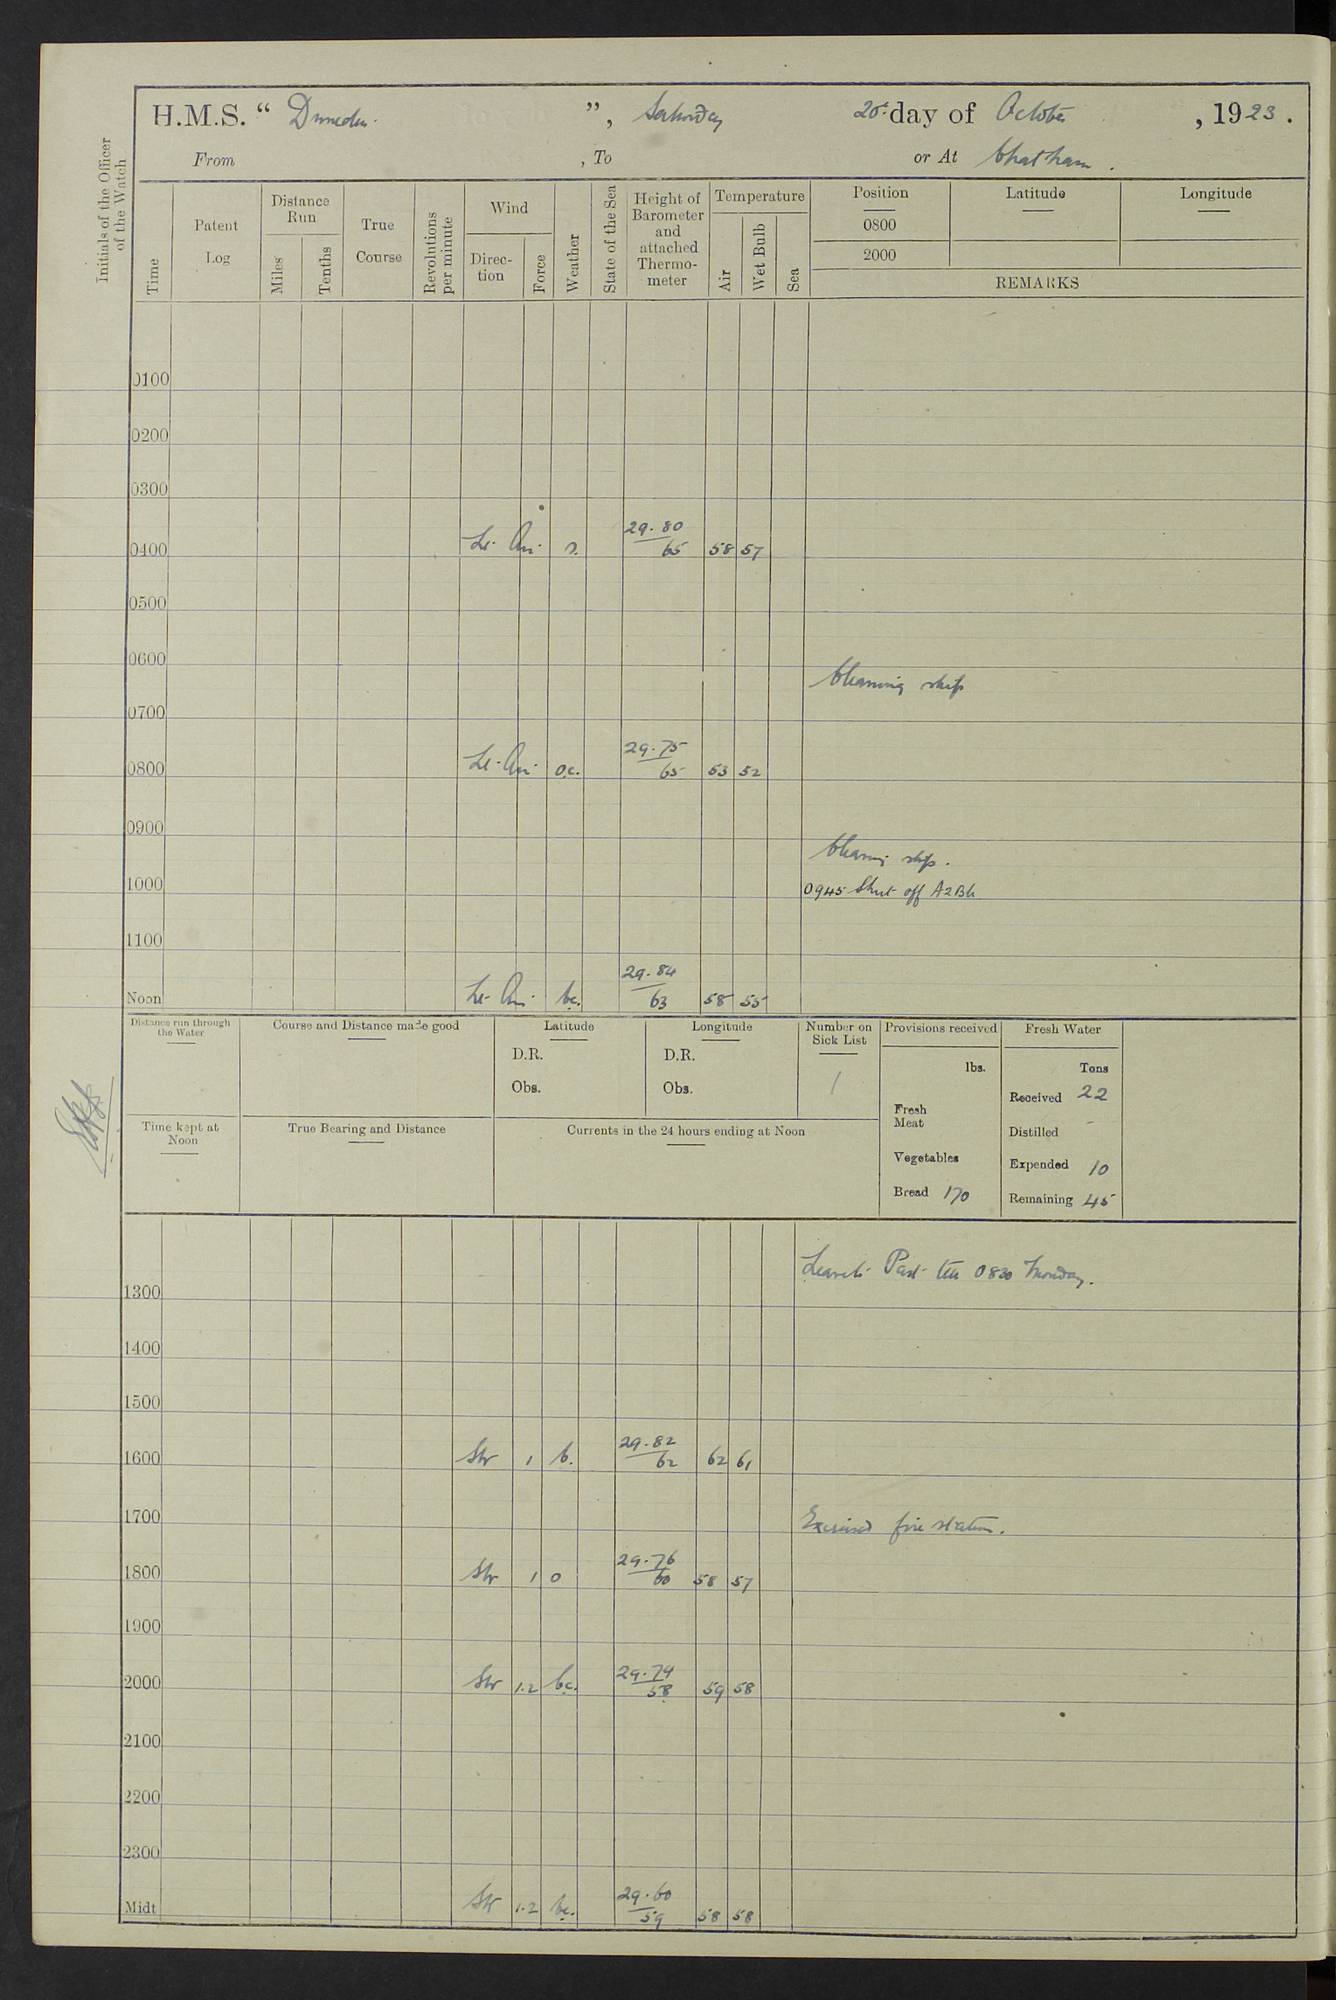 H.M.S. "Dunedin", Saturday 20th day of October, 1923.
From , To or At Chatham.
Initials of the Officer of the Watch
Time
Patent Log
Distance Run
Miles
Tenths
True Course
Revolutions per minute
Wind
Direction
Force
Weather
State of the Sea
Height of Barometer and attached Thermometer
Temperature
Air
Wet Bulb
Sea
Position Latitude Longitude
0800
2000
REMARKS
0100
0200
0300
0400 Lt. Air. 29.80/65 58 57
0500
0600
Cleaning ship
0700
0800 Lt. Air. o.c. 29.75/65 53 52
0900
Cleaning ship.
1000 0945 Shut off A2Blr
1100
Noon Lt. Air. bc. 29.84/63 58 55
Distance run through the Water
Course and Distance made good
Latitude
D.R.
Obs.
Longitude
D.R.
Obs.
Number on Sick List
1
Provisions received
lbs.
Fresh Meat
Vegetables
Bread 170
Fresh Water
Tons
Received 22
Distilled -
Expended 10
Remaining 45
Time kept at Noon
True Bearing and Distance
Currents in the 24 hours ending at Noon
Leave to Part till 0830 Monday.
1300
1400
1500
1600 SW 1 b. 29.82/62 62 61
1700 Exercised fire stations.
1800 SW 1 o 29.76/60 58 57
1900
2000 SW 1.2 bc. 29.74/58 59 58
2100
2200
2300
Midt SW 1.2 bc. 29.60/59 58 58